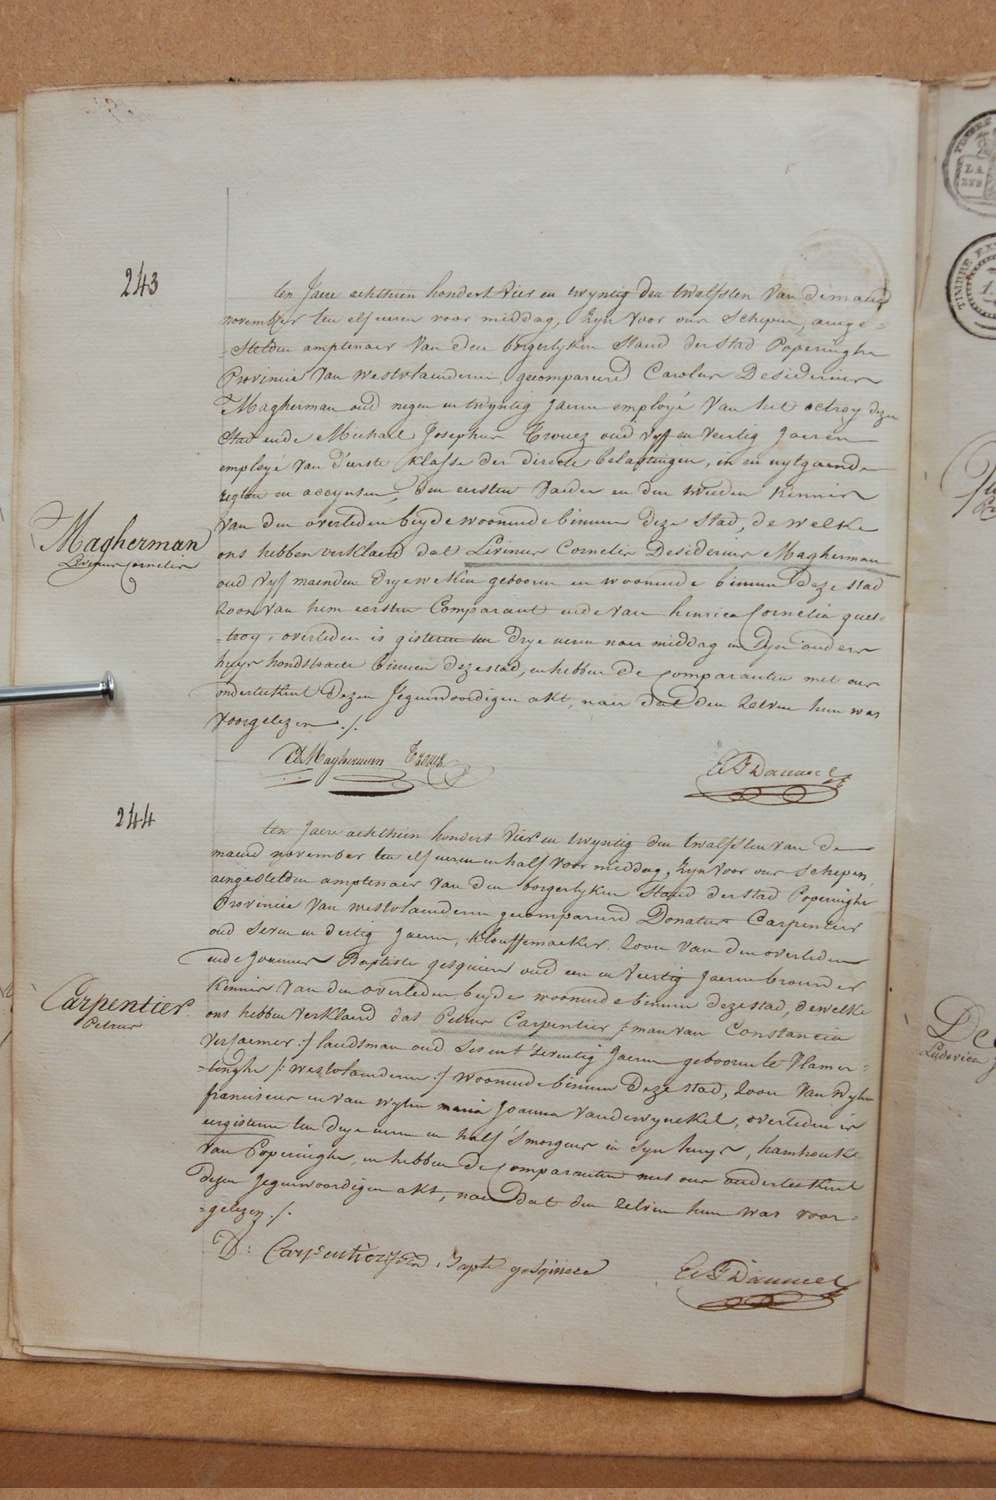 243
ten Jaere achthien hondert vier en twyntig den twalfsten van de maend
november ten elf uren voor middag, zyn voor ons schepen, ange-
-stelden amptenaer van den borgerlyken stand der stad Poperinghe
Provincie van westvlaenderen, gecompareerd Carolus Desiderius
Magherman oud negen en twyntig jaeren employé van het octroy dezer
stad ende Michael Josephus Trouez oud vyf en veertig jaeren
employé van d'eerste klasse der directe belastingen, in en uytgaende
regten en accynsen, den eersten vader en den tweeden kennis
van den overleden beyde woonende binnen deze stad, de welke
Magherman
Livinus Cornelis
ons hebben verklaerd dat Livinus Cornelis Desiderius Magherman
oud vyf maenden drye weken gebooren en woonende binnen deze stad
zoon van hem eersten Comparant ende van henrica Cornelia ques-
-troy, overleden is gisteren ten drye uren naer middag in zyn ouders
huys hondstraete binnen deze stad, en hebben de comparanten met ons
onderteekent dezen jegenwoordigen akt, naer dat den zelven hun was
voorgelezen ./.
CD Magherman Trouez
244
ten Jaere achthien hondert vier en twyntig den twalfsten van de
maend november ten elf uren en half voor middag, zyn voor ons schepen,
aengestelden amptenaer van den borgerlyken stand der stad Poperinghe
Provincie van westvlaenderen gecompareerd Donatus Carpentier
oud seven en dertig jaeren, kloeffemaeker, zoon van den overleden
ende Joannes Baptiste gesquiere oud een en veertig jaeren brouwer
Carpentier
Petrus
kennis van den overleden beyde woonende binnen deze stad, de welke
ons hebben verklaerd dat Petrus Carpentier /: man van Constancia
Versaemer :/ landsman oud ses en t'zeventig jaeren gebooren te Vlamer-
-tinghe /: westvlaenderen :/ woonende binnen deze stad, zoon van wylen
franciscus en van wylen maria Joanna Vanderwynckel, overleden is
eergisteren ten drye uren en half s'morgens in syn huys, hamhoeke
van Poperinghe, en hebben de comparanten met ons onderteekent
dezen jegenwoordigen akt, naer dat den zelven hun was voor-
-gelezen ./.
D: Carpentier